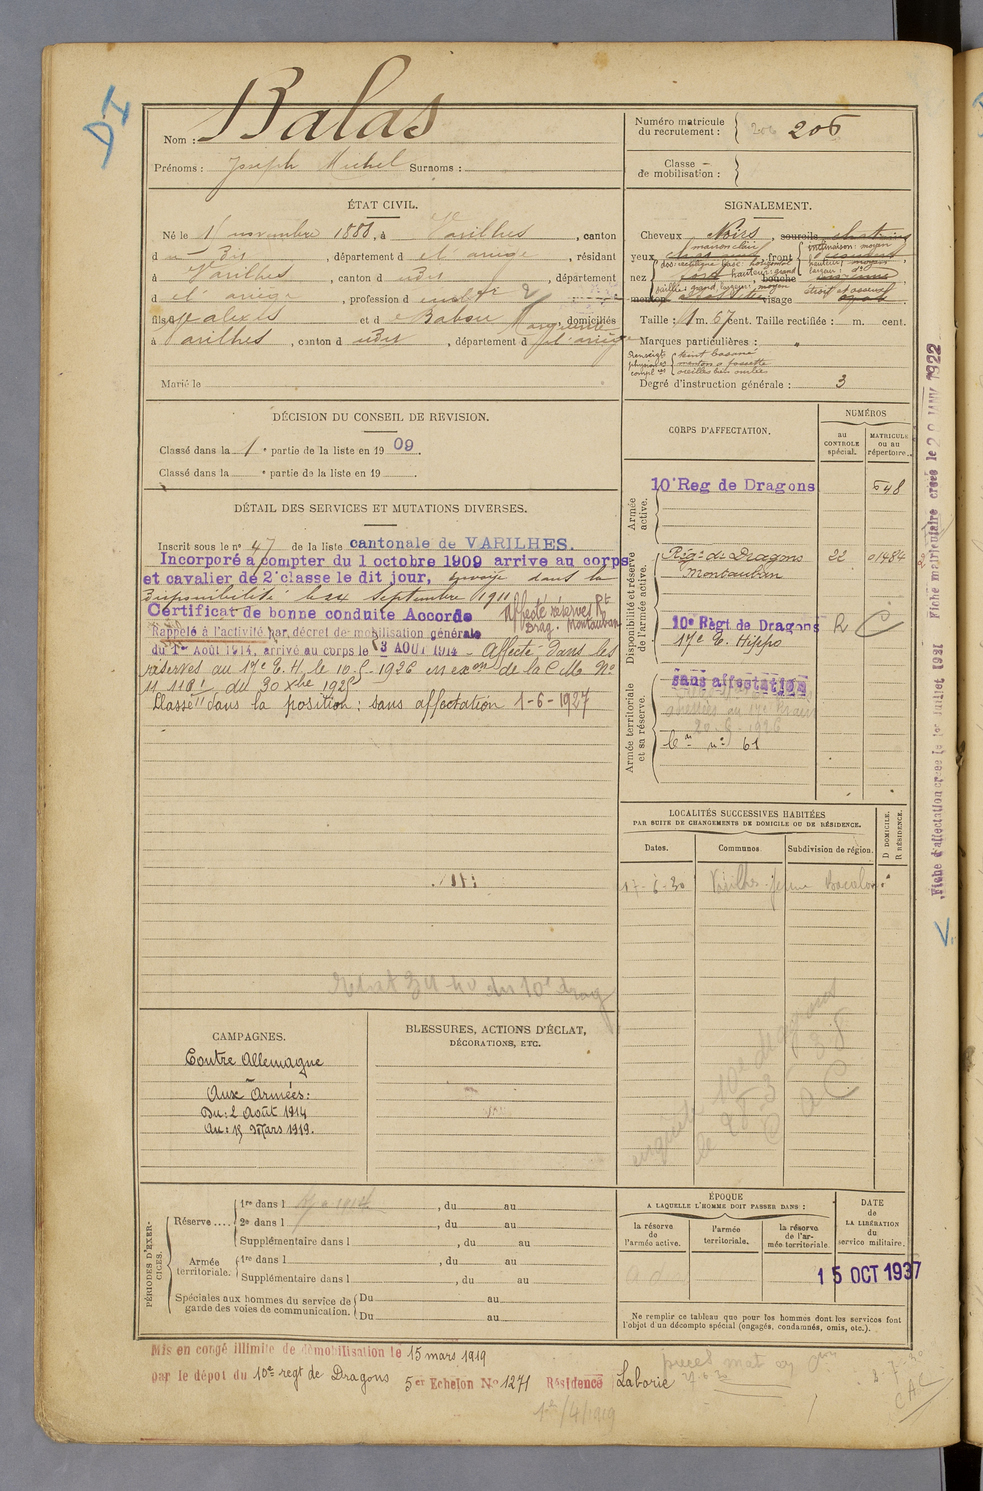 DI
Nom : Balas
Prénoms : Joseph Michel Surnoms :
Numéro matricule du recrutement : 206
Classe de mobilisation :
ÉTAT CIVIL.
Né le novembre 1888, à Varilhes, canton
d dit, département d el ariège, résidant
à Varilhes, canton d udit, département
d el ariège, profession d cultr
fils d alexis et d Babou Marguerite, domiciliés
à Varilhes, canton d udit, département d el ariège
Marié le
SIGNALEMENT.
Cheveux Noirs, sourcils chatains
marron clair inclinaison: moyen
yeux, front hauteur: moyen
dos: rectiligne base: horizontal largeur: do
nez hauteur: grand bouche
saillie: grand, largeur: moyen
menton visage
Taille : 1 m. 67 cent. Taille rectifiée : m. cent.
Marques particulières :
Renseigts physiono compl res teint basané
menton à fossette
oreilles bien ourlées
Degré d'instruction générale : 3
DÉCISION DU CONSEIL DE REVISION.
Classé dans la 1 e partie de la liste en 1909.
Classé dans la e partie de la liste en 19
CORPS D'AFFECTATION.
NUMÉROS
au CONTROLE spécial.
MATRICULE ou au répertoire.
Armée active.
10e Reg de Dragons 648
Disponibilité et réserve de l'armée active.
Rég. de Dragons 22 01484
Montauban
10e Régt de Dragons R C
17e E. Hippo
Armée territoriale et sa réserve.
sans affectation
Cn no 61
DÉTAIL DES SERVICES ET MUTATIONS DIVERSES.
Inscrit sous le no 47 de la liste cantonale de VARILHES.
Incorporé à compter du 1 octobre 1909 arrive au corps
et cavalier de 2e classe le dit jour, envoyé dans la
disponibilité le 24 Septembre 1911
Certificat de bonne conduite Accordé
Affecté réserves Rt Drag. Montauban
Rappelé à l'activité par décret de mobilisation générale
du 1er Août 1914, arrivé au corps le 3 AOUT 1914 - Affecté dans les
réserves au 17e E. H. le 10-5-1926 en exon de la C. M. No
11 118 du 30 Xbre 1925
Classé dans la position : sans affectation 1-6-1927
LOCALITÉS SUCCESSIVES HABITÉES
PAR SUITE DE CHANGEMENTS DE DOMICILE OU DE RÉSIDENCE.
Dates. Communes Subdivision de région. D DOMICILE. R RÉSIDENCE.
17-6-30 Varilhes
CAMPAGNES.
Contre Allemagne
Aux Armées:
Du: 2 Août 1914
Au: 15 Mars 1919.
BLESSURES, ACTIONS D'ÉCLAT,
DÉCORATIONS, ETC.
PÉRIODES D'EXERCICES.
Réserve .... 1re dans l, du au
2e dans l, du au
Supplémentaire dans l, du au
Armée territoriale. 1re dans l, du au
Supplémentaire dans l, du au
Spéciales aux hommes du service de garde des voies de communication. Du au
Du au
ÉPOQUE
A LAQUELLE L'HOMME DOIT PASSER DANS :
la réserve de l'armée active.
l'armée territoriale.
la réserve de l'armée territoriale.
DATE de LA LIBÉRATION du service militaire.
15 OCT 1937
Ne remplir ce tableau que pour les hommes dont les services font
l'objet d'un décompte spécial (engagés, condamnés, omis, etc.).
Mis en congé illimité de démobilisation le 15 mars 1919
par le dépôt du 10e regt de Dragons 5e Echelon No 1271 Résidence Laborie
Fiche d'affectation créée le 1er Juillet 1921 Fiche matriculaire créée le 20 JANV 1922